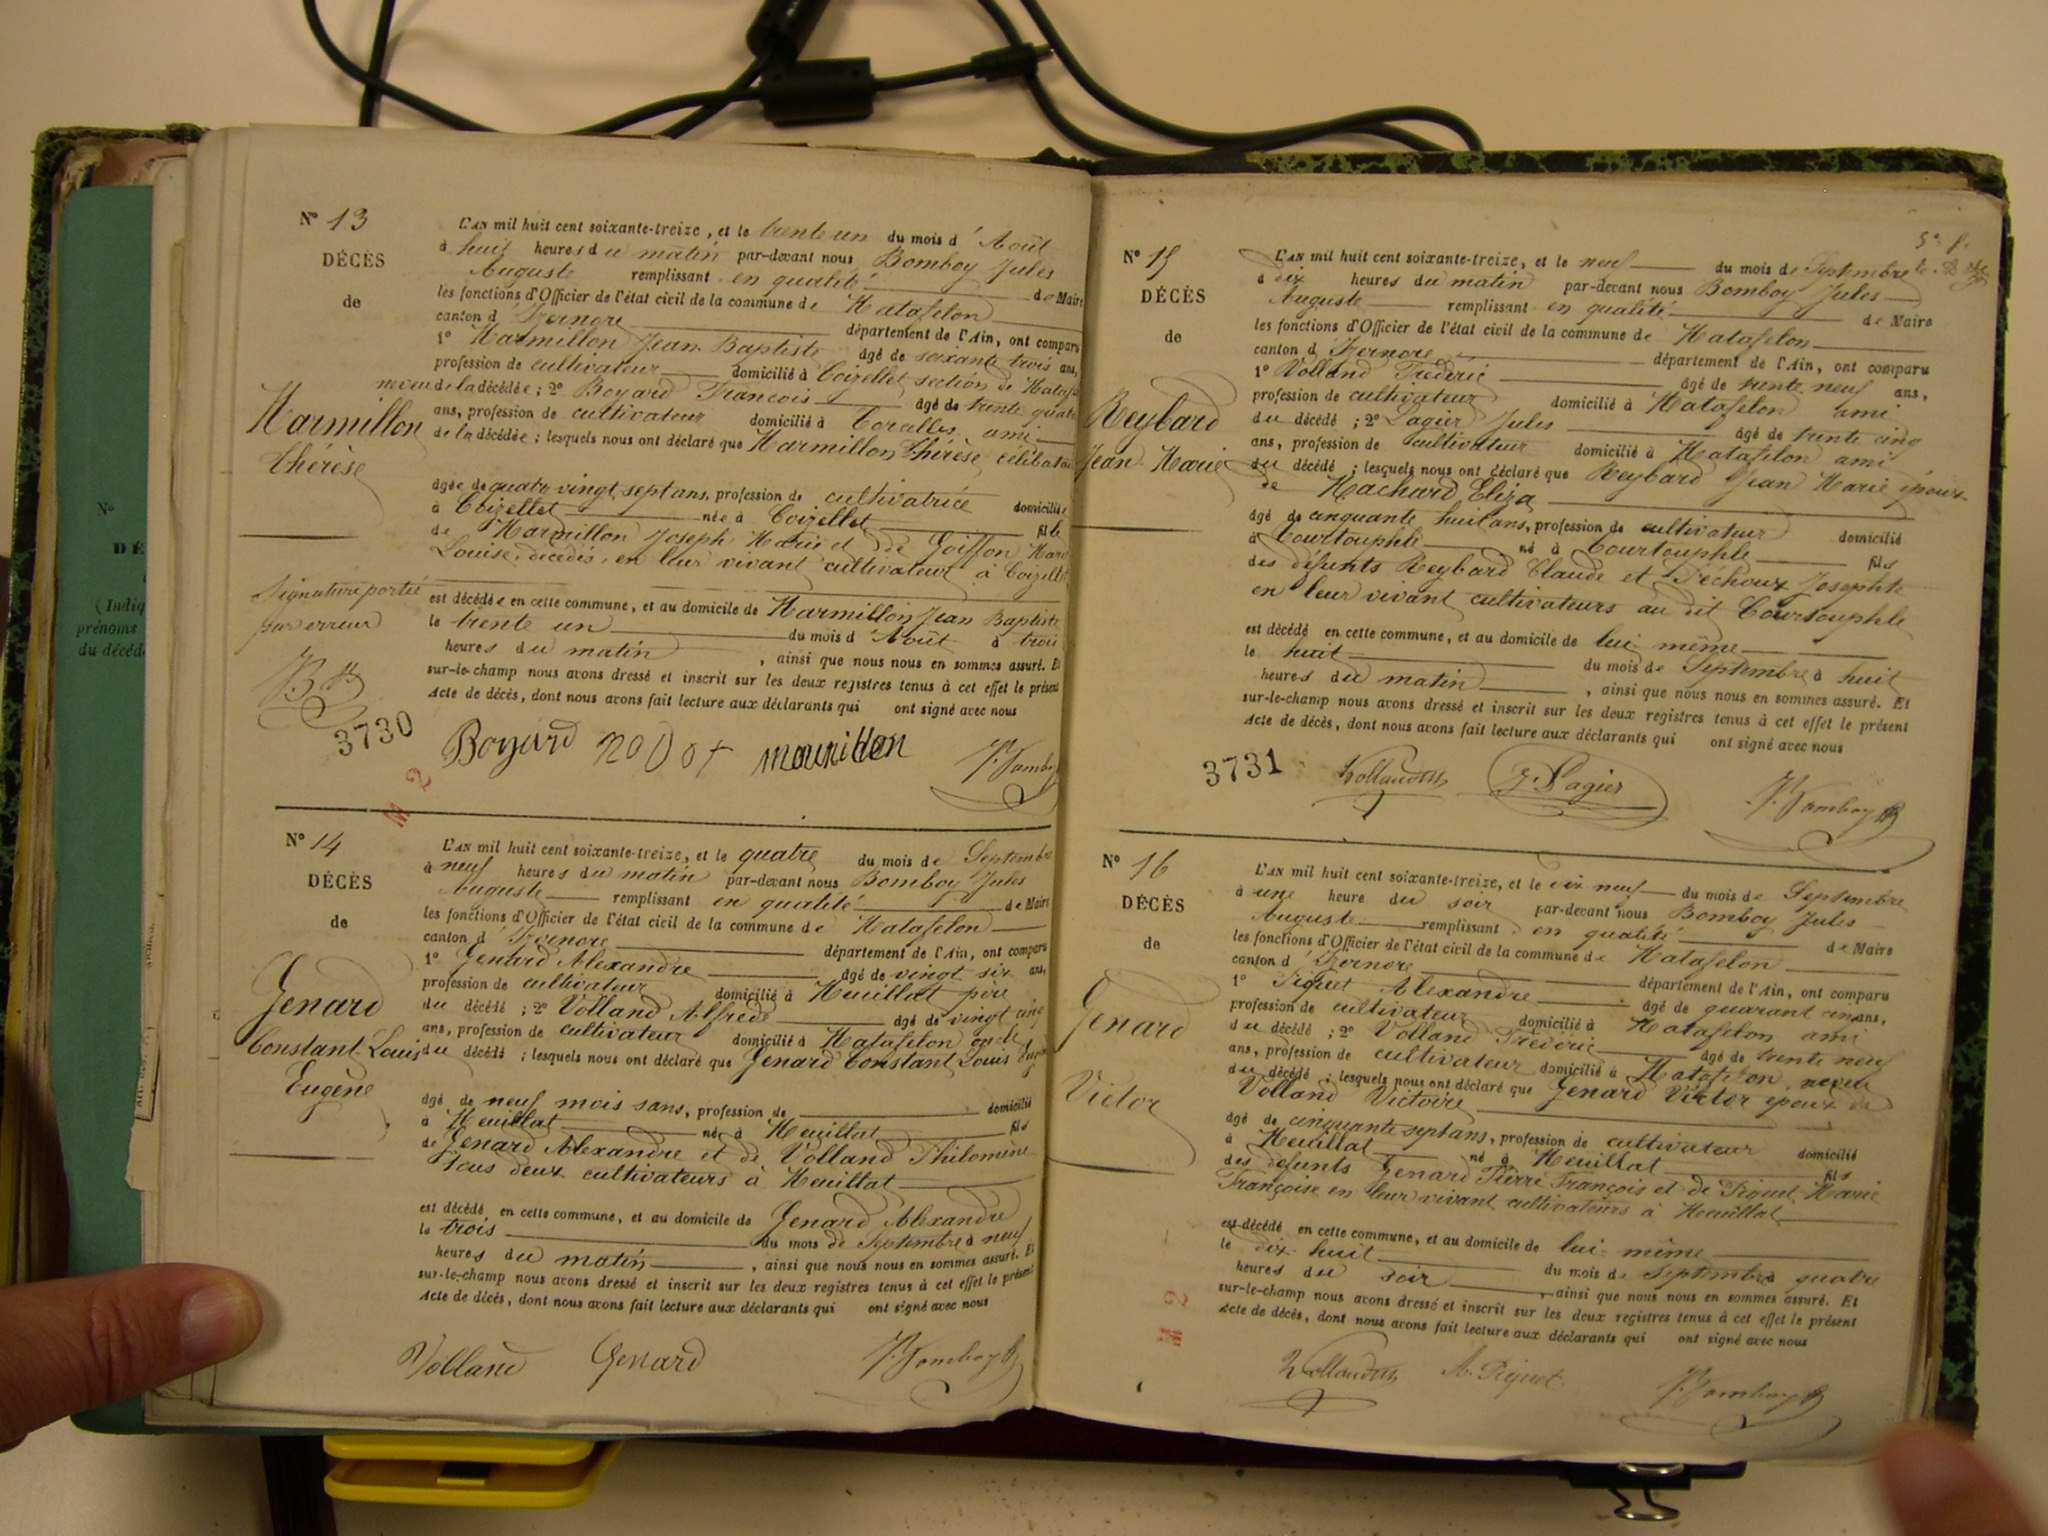 N° 13
DÉCÈS
de
Marmillon
thérèse
Signature portée
par erreur
3730
L'AN mil huit cent soixante-treize, et le trente un du mois d'Août
à huit heures du matin par-devant nous Bomboy Jules
Auguste remplissant en qualité de Maire
les fonctions d'Officier de l'état civil de la commune de Matafelon
canton d'Izernore département de l'Ain, ont comparu
1° Marmillon Jean Baptiste âgé de soixante trois ans,
profession de cultivateur domicilié à Coizellet section de
neveu de la décédée ; 2° Boyard François âgé de trente quatre
ans, profession de cultivateur domicilié à ami
de la décédée ; lesquels nous ont déclaré que Marmillon Thérèse
âgée de quatre vingt sept ans, profession de cultivatrice domiciliée
à Coizellet née à Coizellet fille
de Marmillon Joseph Marie et de Goiffon
Louise, décédés, en leur vivant cultivateurs à
est décédée en cette commune, et au domicile de Marmillon Jean Baptiste
le trente un du mois d'Août à trois
heures du matin , ainsi que nous nous en sommes assuré. Et
sur-le-champ nous avons dressé et inscrit sur les deux registres tenus à cet effet le présent
Acte de décès, dont nous avons fait lecture aux déclarants qui ont signé avec nous
Boyard
N° 14
DÉCÈS
de
Genard
Constant Louis
Eugène
L'AN mil huit cent soixante-treize, et le quatre du mois de Septembre
à neuf heures du matin par-devant nous Bomboy Jules
Auguste remplissant en qualité de Maire
les fonctions d'Officier de l'état civil de la commune de Matafelon
canton d'Izernore département de l'Ain, ont comparu
1° Genard Alexandre âgé de vingt six ans,
profession de cultivateur domicilié à Heuillat père
du décédé ; 2° Volland Alfrède âgé de vingt cinq
ans, profession de cultivateur domicilié à Matafelon oncle
du décédé ; lesquels nous ont déclaré que Genard Constant Louis
âgé de neuf mois sans, profession de domicilié
à Heuillat né à Heuillat fils
de Genard Alexandre et de Volland Philomène
tous deux cultivateurs à Heuillat
est décédé en cette commune, et au domicile de Genard Alexandre
le trois du mois de Septembre à neuf
heures du matin , ainsi que nous nous en sommes assuré. Et
sur-le-champ nous avons dressé et inscrit sur les deux registres tenus à cet effet le présent
Acte de décès, dont nous avons fait lecture aux déclarants qui ont signé avec nous
Volland Genard J. Bomboy
N° 15
DÉCÈS
de
Reybard
Jean Marie
L'AN mil huit cent soixante-treize, et le neuf du mois de Septembre
à dix heures du matin par-devant nous Bomboy Jules
Auguste remplissant en qualité de Maire
les fonctions d'Officier de l'état civil de la commune de Matafelon
canton d'Izernore département de l'Ain, ont comparu
1° Volland Fréderic âgé de trente neuf ans,
profession de cultivateur domicilié à Matafelon ami
du décédé ; 2° Lagier Jules âgé de trente cinq
ans, profession de cultivateur domicilié à Matafelon ami
du décédé ; lesquels nous ont déclaré que Reybard Jean Marie époux
de Machurd Eliza
âgé de cinquante huit ans, profession de cultivateur domicilié
à Courtouphle né à Courtouphle fils
des défunts Reybard Claude et Josephte
en leur vivant cultivateurs au dit Courtouphle
est décédé en cette commune, et au domicile de lui même
le huit du mois de Septembre à huit
heures du matin , ainsi que nous nous en sommes assuré. Et
sur-le-champ nous avons dressé et inscrit sur les deux registres tenus à cet effet le présent
Acte de décès, dont nous avons fait lecture aux déclarants qui ont signé avec nous
3731 J. Lagier J. Bomboy
N° 16
DÉCÈS
de
Genard
Victor
L'AN mil huit cent soixante-treize, et le dix neuf du mois de Septembre
à une heure du soir par-devant nous Bomboy Jules
Auguste remplissant en qualité de Maire
les fonctions d'Officier de l'état civil de la commune de Matafelon
canton d'Izernore département de l'Ain, ont comparu
1° Piquet Alexandre âgé de quarant ans,
profession de cultivateur domicilié à Matafelon ami
du décédé ; 2° Volland Fréderic âgé de trente neuf
ans, profession de cultivateur domicilié à Matafelon, neveu
du décédé ; lesquels nous ont déclaré que Genard Victor époux de
Volland Victoire
âgé de cinquante sept ans, profession de cultivateur domicilié
à Heuillat né à Heuillat fils
des défunts Genard Pierre François et de Piquet Marie
Françoise en leur vivant cultivateurs à Heuillat
est décédé en cette commune, et au domicile de lui même
le dix huit du mois de Septembre à quatre
heures du soir , ainsi que nous nous en sommes assuré. Et
sur-le-champ nous avons dressé et inscrit sur les deux registres tenus à cet effet le présent
Acte de décès, dont nous avons fait lecture aux déclarants qui ont signé avec nous
A. Piquet J. Bomboy